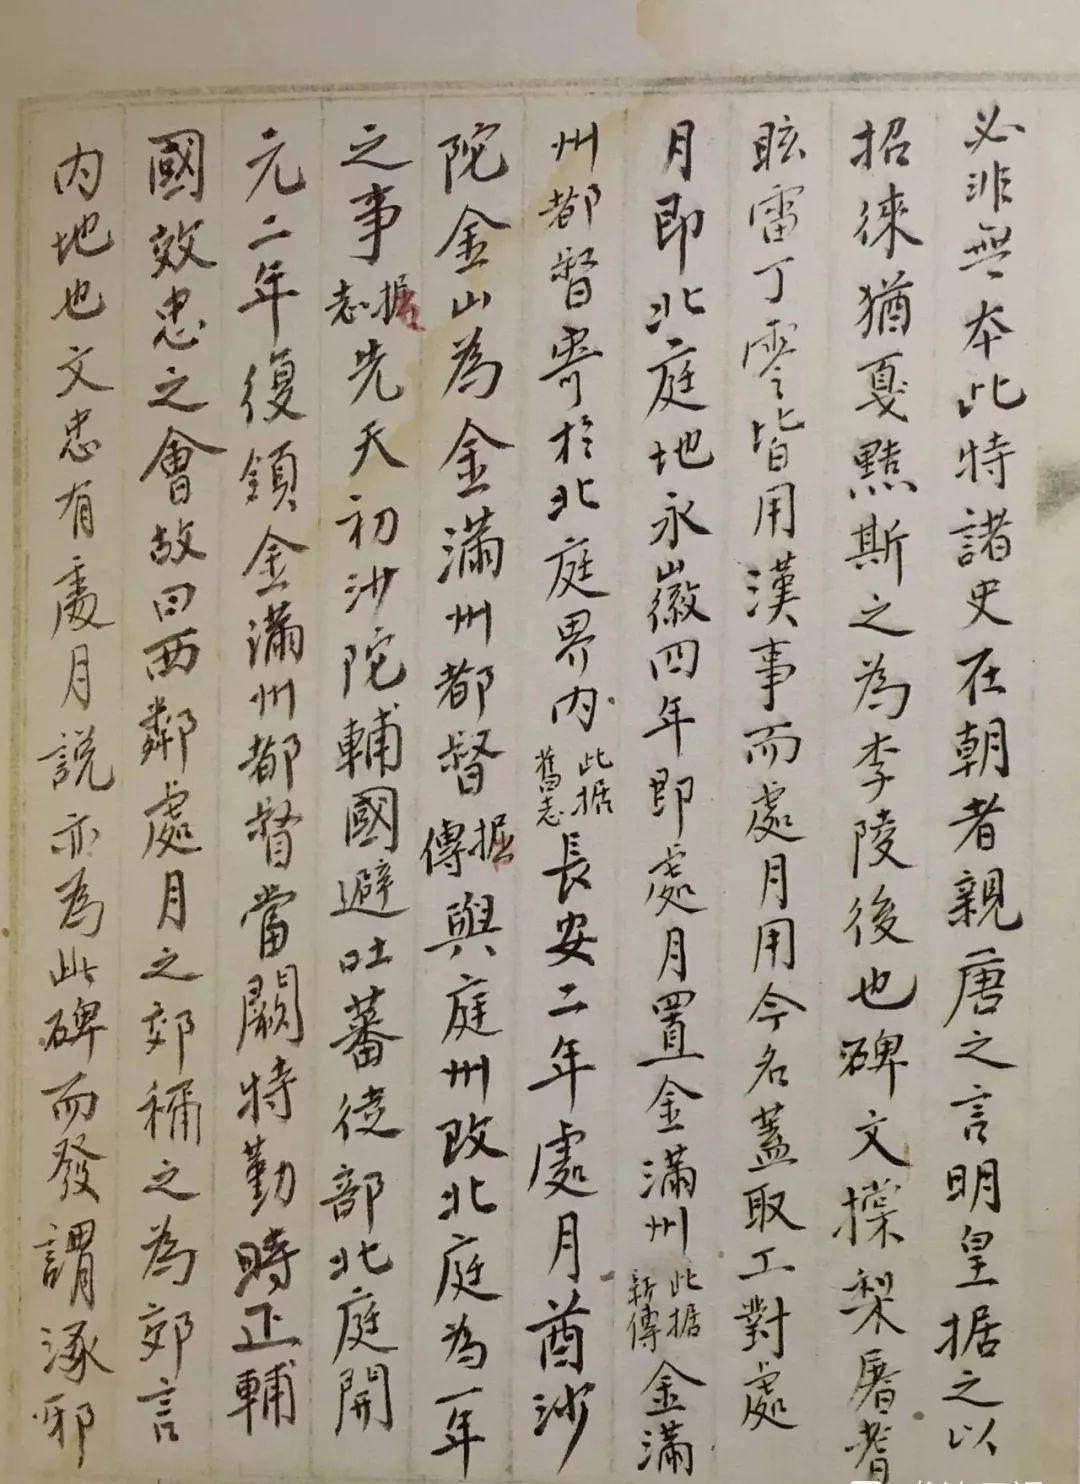 必非無本此特諸史在朝者親唐之言明皇据之以
招徠猶戛黠斯之為李陵後也碑文梨屠耆
眩雷丁零皆用漢事而處月用今名蓋取工對處
月即北庭地永徽四年即處月置金滿州此据新傳金滿
州都督寄於北庭界内此据舊志長安二年處月酋沙
陀金山為金滿州都督据傳與庭州改北庭為一年
之事据志先天初沙陀輔國避吐蕃徙部北庭開
元二年復領金滿州都督當闕特勤時正輔
國效忠之會故曰西鄰處月之郊稱之為郊言
内地也文忠有處月説亦為此碑而發謂涿邪